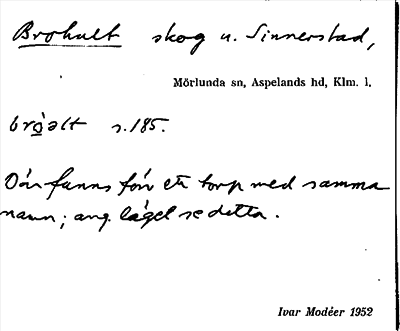 Brohult skog u. Sinnerstad,
Mörlunda sn, Aspelands hd, Klm. l.
bròəlt s.185.
Där fanns förr ett torp med samma
namn; ang. läget se detta.
Ivar Modéer 1952